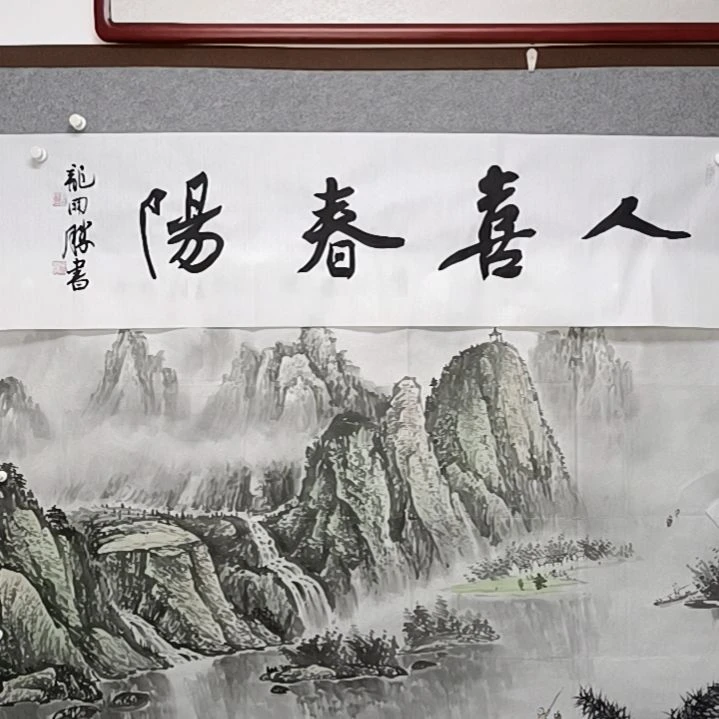 人喜春陽
龍田勝書